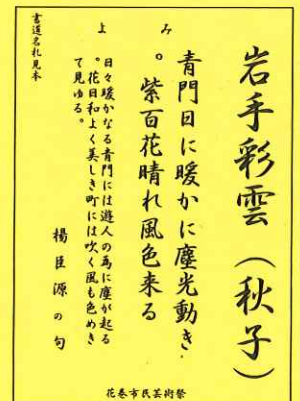 岩手彩雲（秋子）
み
青門日に暖かに塵光動き
。紫百花晴れ風色来る
よ
日々暖かなる青門には遊人の為に塵が起る
。花日和よく美しき町には吹く風も色めき
て見ゆる。
楊臣源の句
書道名札見本
花巻市民芸術祭